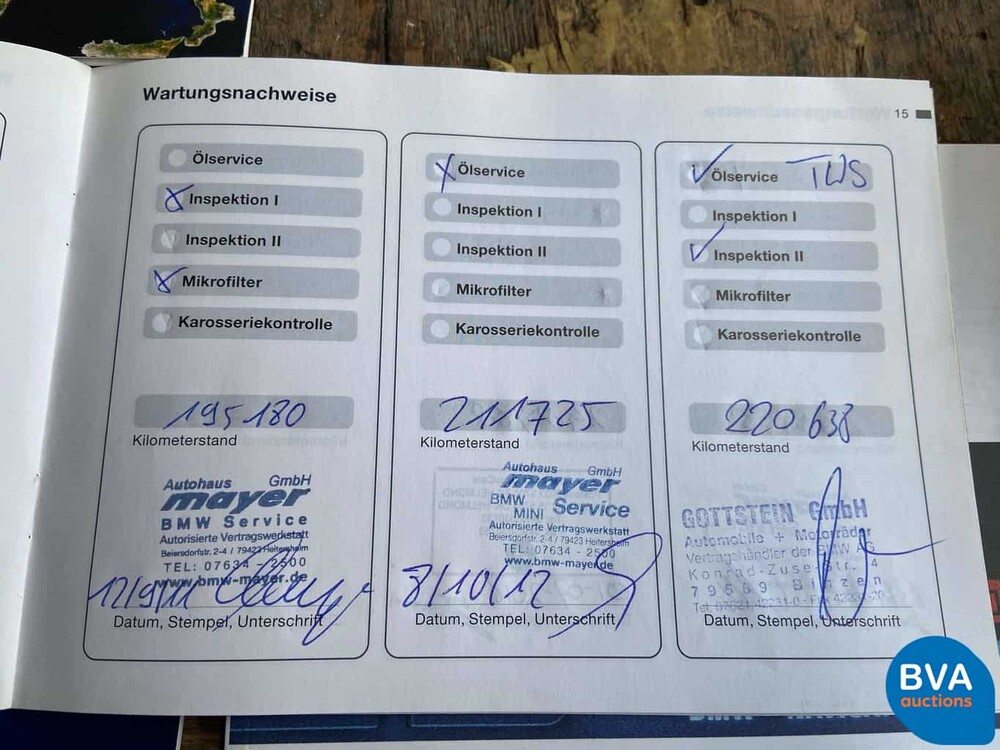 Wartungsnachweise
15
Ölservice
Inspektion I
Inspektion II
Mikrofilter
Karosseriekontrolle
195180
Kilometerstand
Autohaus GmbH
mayer
BMW Service
Autorisierte Vertragswerkstatt
Beiersdorfstr. 2-4 / 79423 Heitersheim
TEL: 07634 - 2500
www.bmw-mayer.de
12/9/11
Datum, Stempel, Unterschrift
Ölservice
Inspektion I
Inspektion II
Mikrofilter
Karosseriekontrolle
211725
Kilometerstand
Autohaus GmbH
mayer
BMW
MINI Service
Autorisierte Vertragswerkstatt
Beiersdorfstr. 2-4 / 79423 Heitersheim
TEL: 07634 - 2500
www.bmw-mayer.de
8/10/12
Datum, Stempel, Unterschrift
Ölservice TWS
Inspektion I
Inspektion II
Mikrofilter
Karosseriekontrolle
220638
Kilometerstand
GOTTSTEIN GmbH
Automobile + Motorräder
Vertragshändler der BMW AG
Konrad-Zuse-Str. 4
79589 Binzen
Tel. 07621/42231-0 · Fax 42231-20
Datum, Stempel, Unterschrift
BVA
auctions